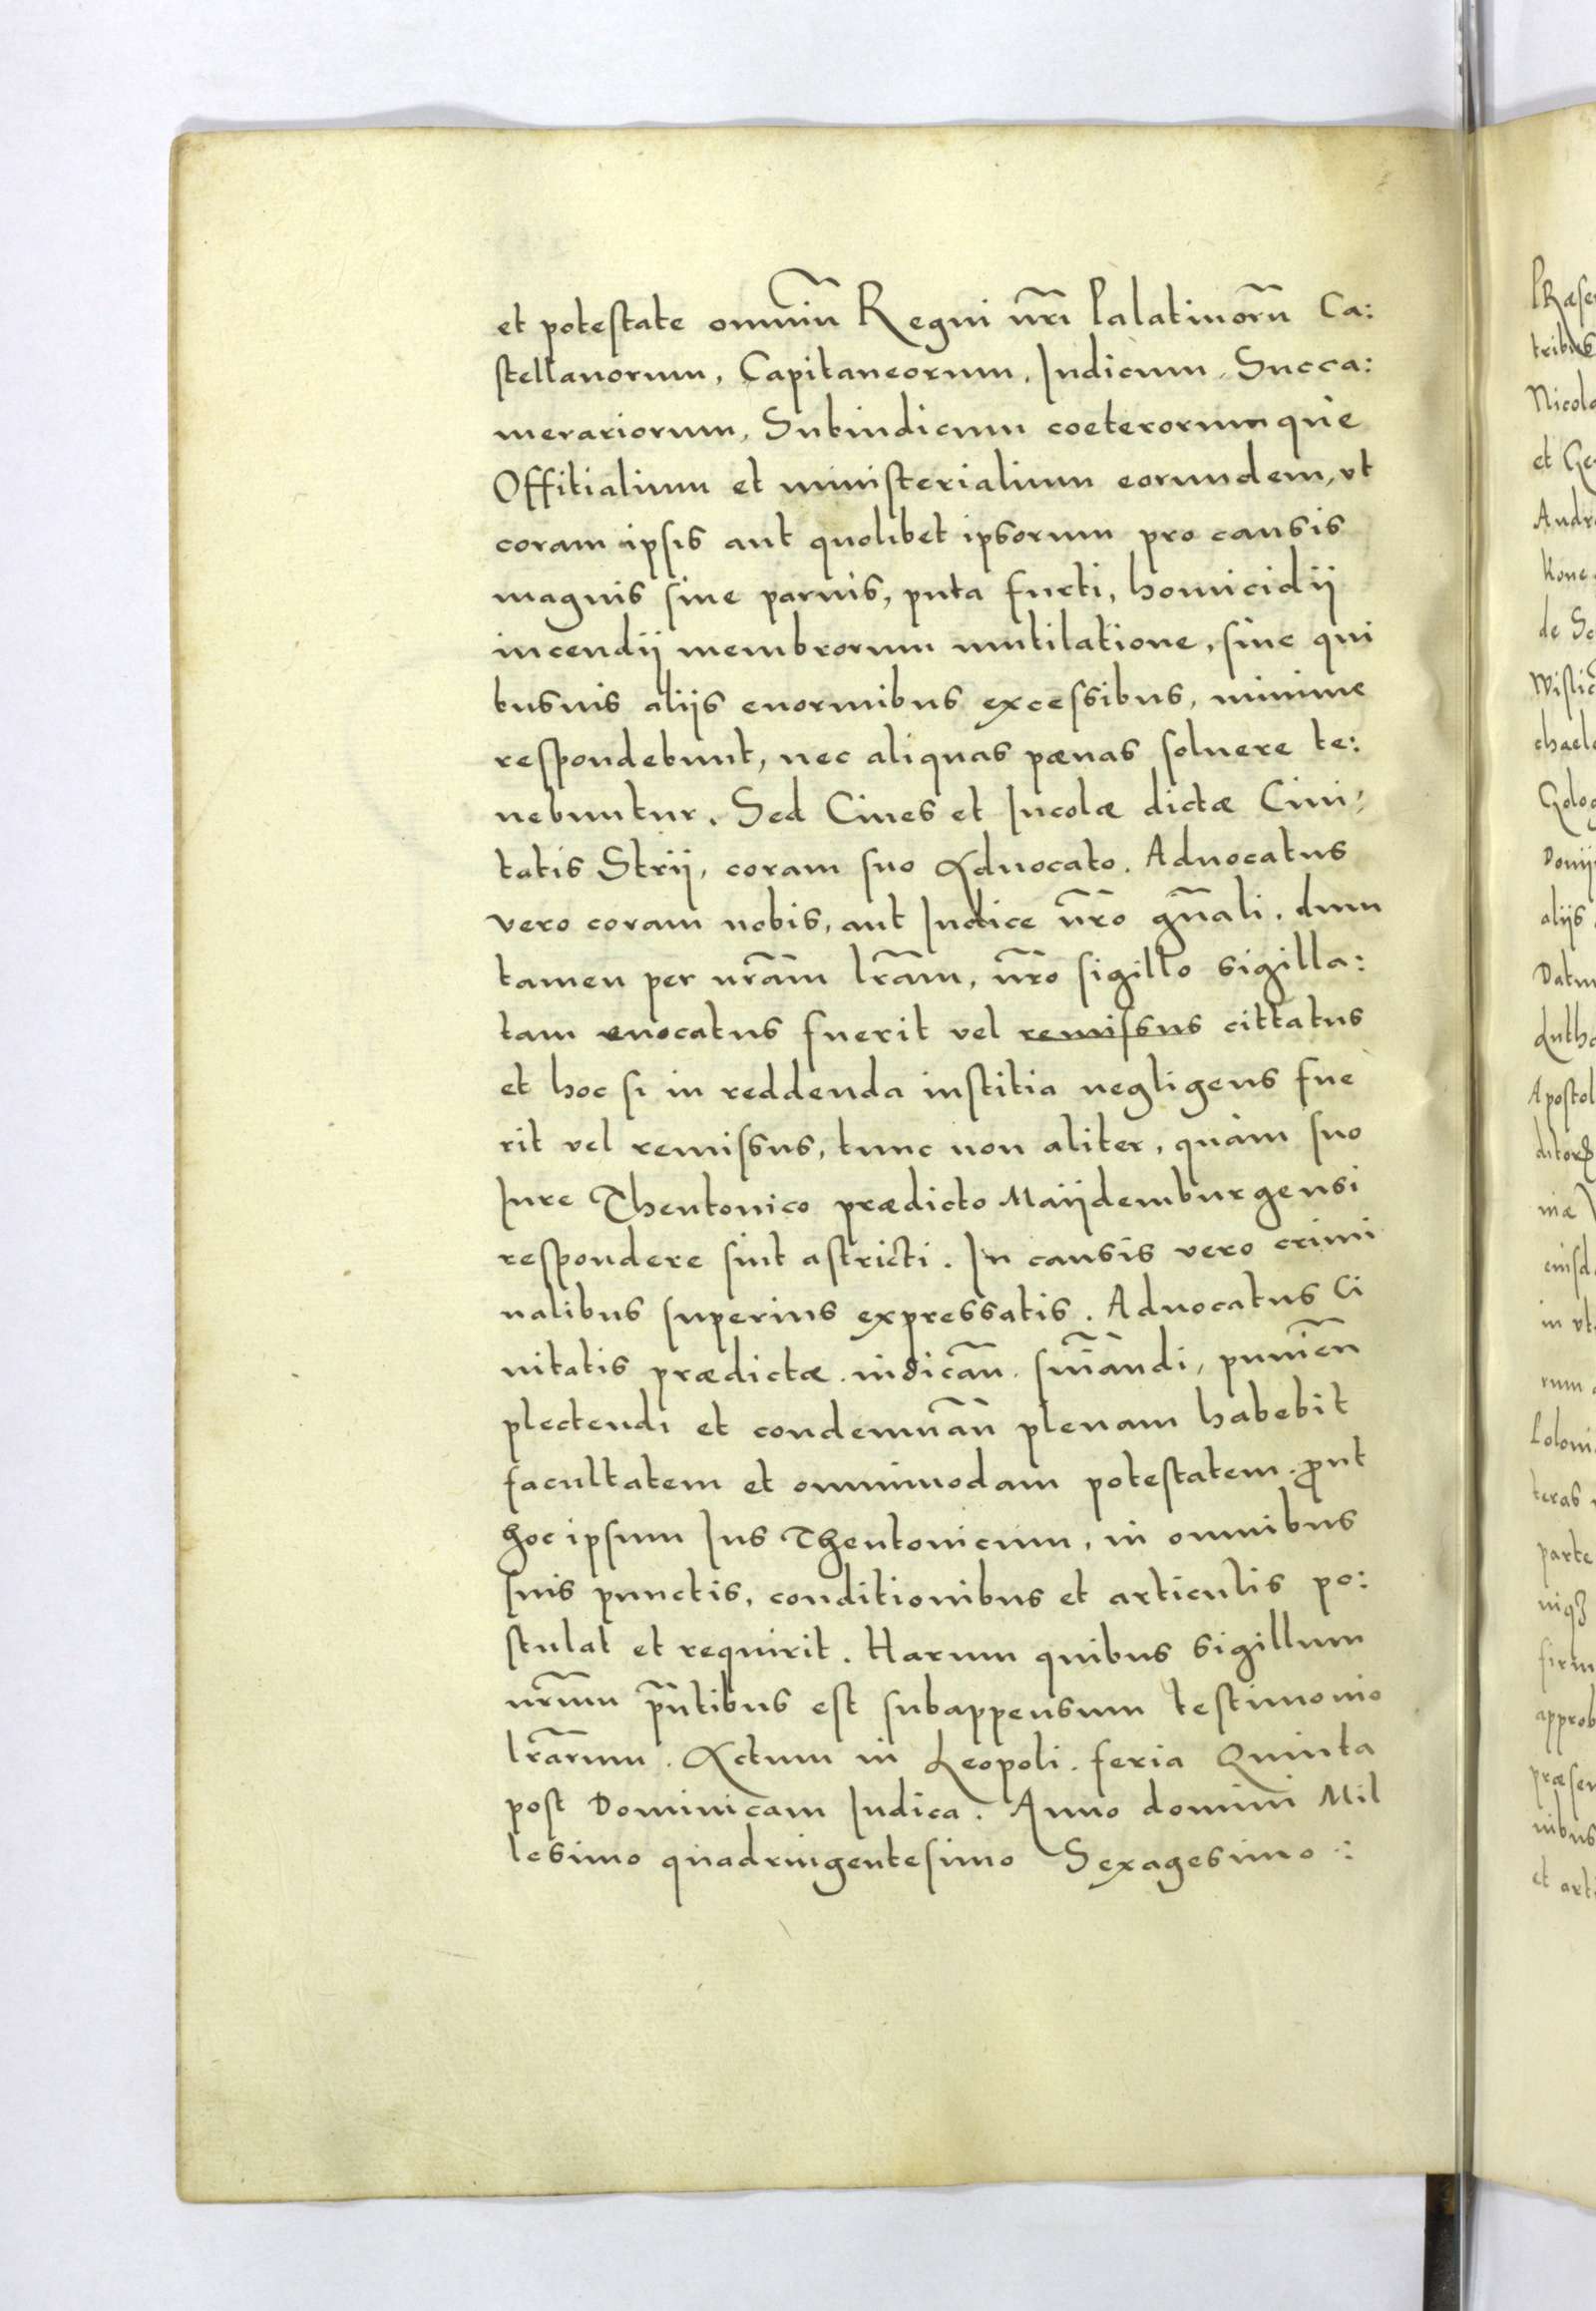 et potestate omniū Regni nr̄i Palatinorū Ca:
stellanorum, Capitaneorum, Iudicum, Succa:
merariorum, Subiudicum coeterorumque
Offitialium et ministerialium eorundem, vt
coram ipsis aut quolibet ipsorum pro causis
magnis siue paruis, puta furti, homicidij
incendij membrorum mutilatione, siue qui
busuis alijs enormibus excessibus, minime
respondebunt, nec aliquas pænas soluere te:
nebuntur. Sed Ciues et Incolæ dictæ Ciui:
tatis Strij, coram suo Aduocato. Aduocatus
vero coram nobis, aut Iudice nr̄o gn̄ali. dum
tamen per nr̄am lr̄am, nr̄o sigillo sigilla:
tam euocatus fuerit vel remissus cittatus
et hoc si in reddenda iustitia negligens fue
rit vel remissus, tunc non aliter, quàm suo
Iure Theutonico prædicto Maijdemburgensi
respondere sint astricti. In causis vero crimi
nalibus superius expressatis. Aduocatus Ci
uitatis prædictæ iudicān. sn̄iandi, puniēn
plectendi et condemnān plenam habebit
facultatem et omnimodam potestatem. ꝓut
hoc ipsum Ius Theutonicum, in omnibus
suis punctis, conditionibus et articulis po:
stulat et requirit. Harum quibus sigillum
nr̄um pn̄tibus est subappensum testimonio
lr̄arum. Actum in Leopoli. feria Quinta
post Dominicam Iudica. Anno domini Mil
lesimo quadringentesimo Sexagesimo :